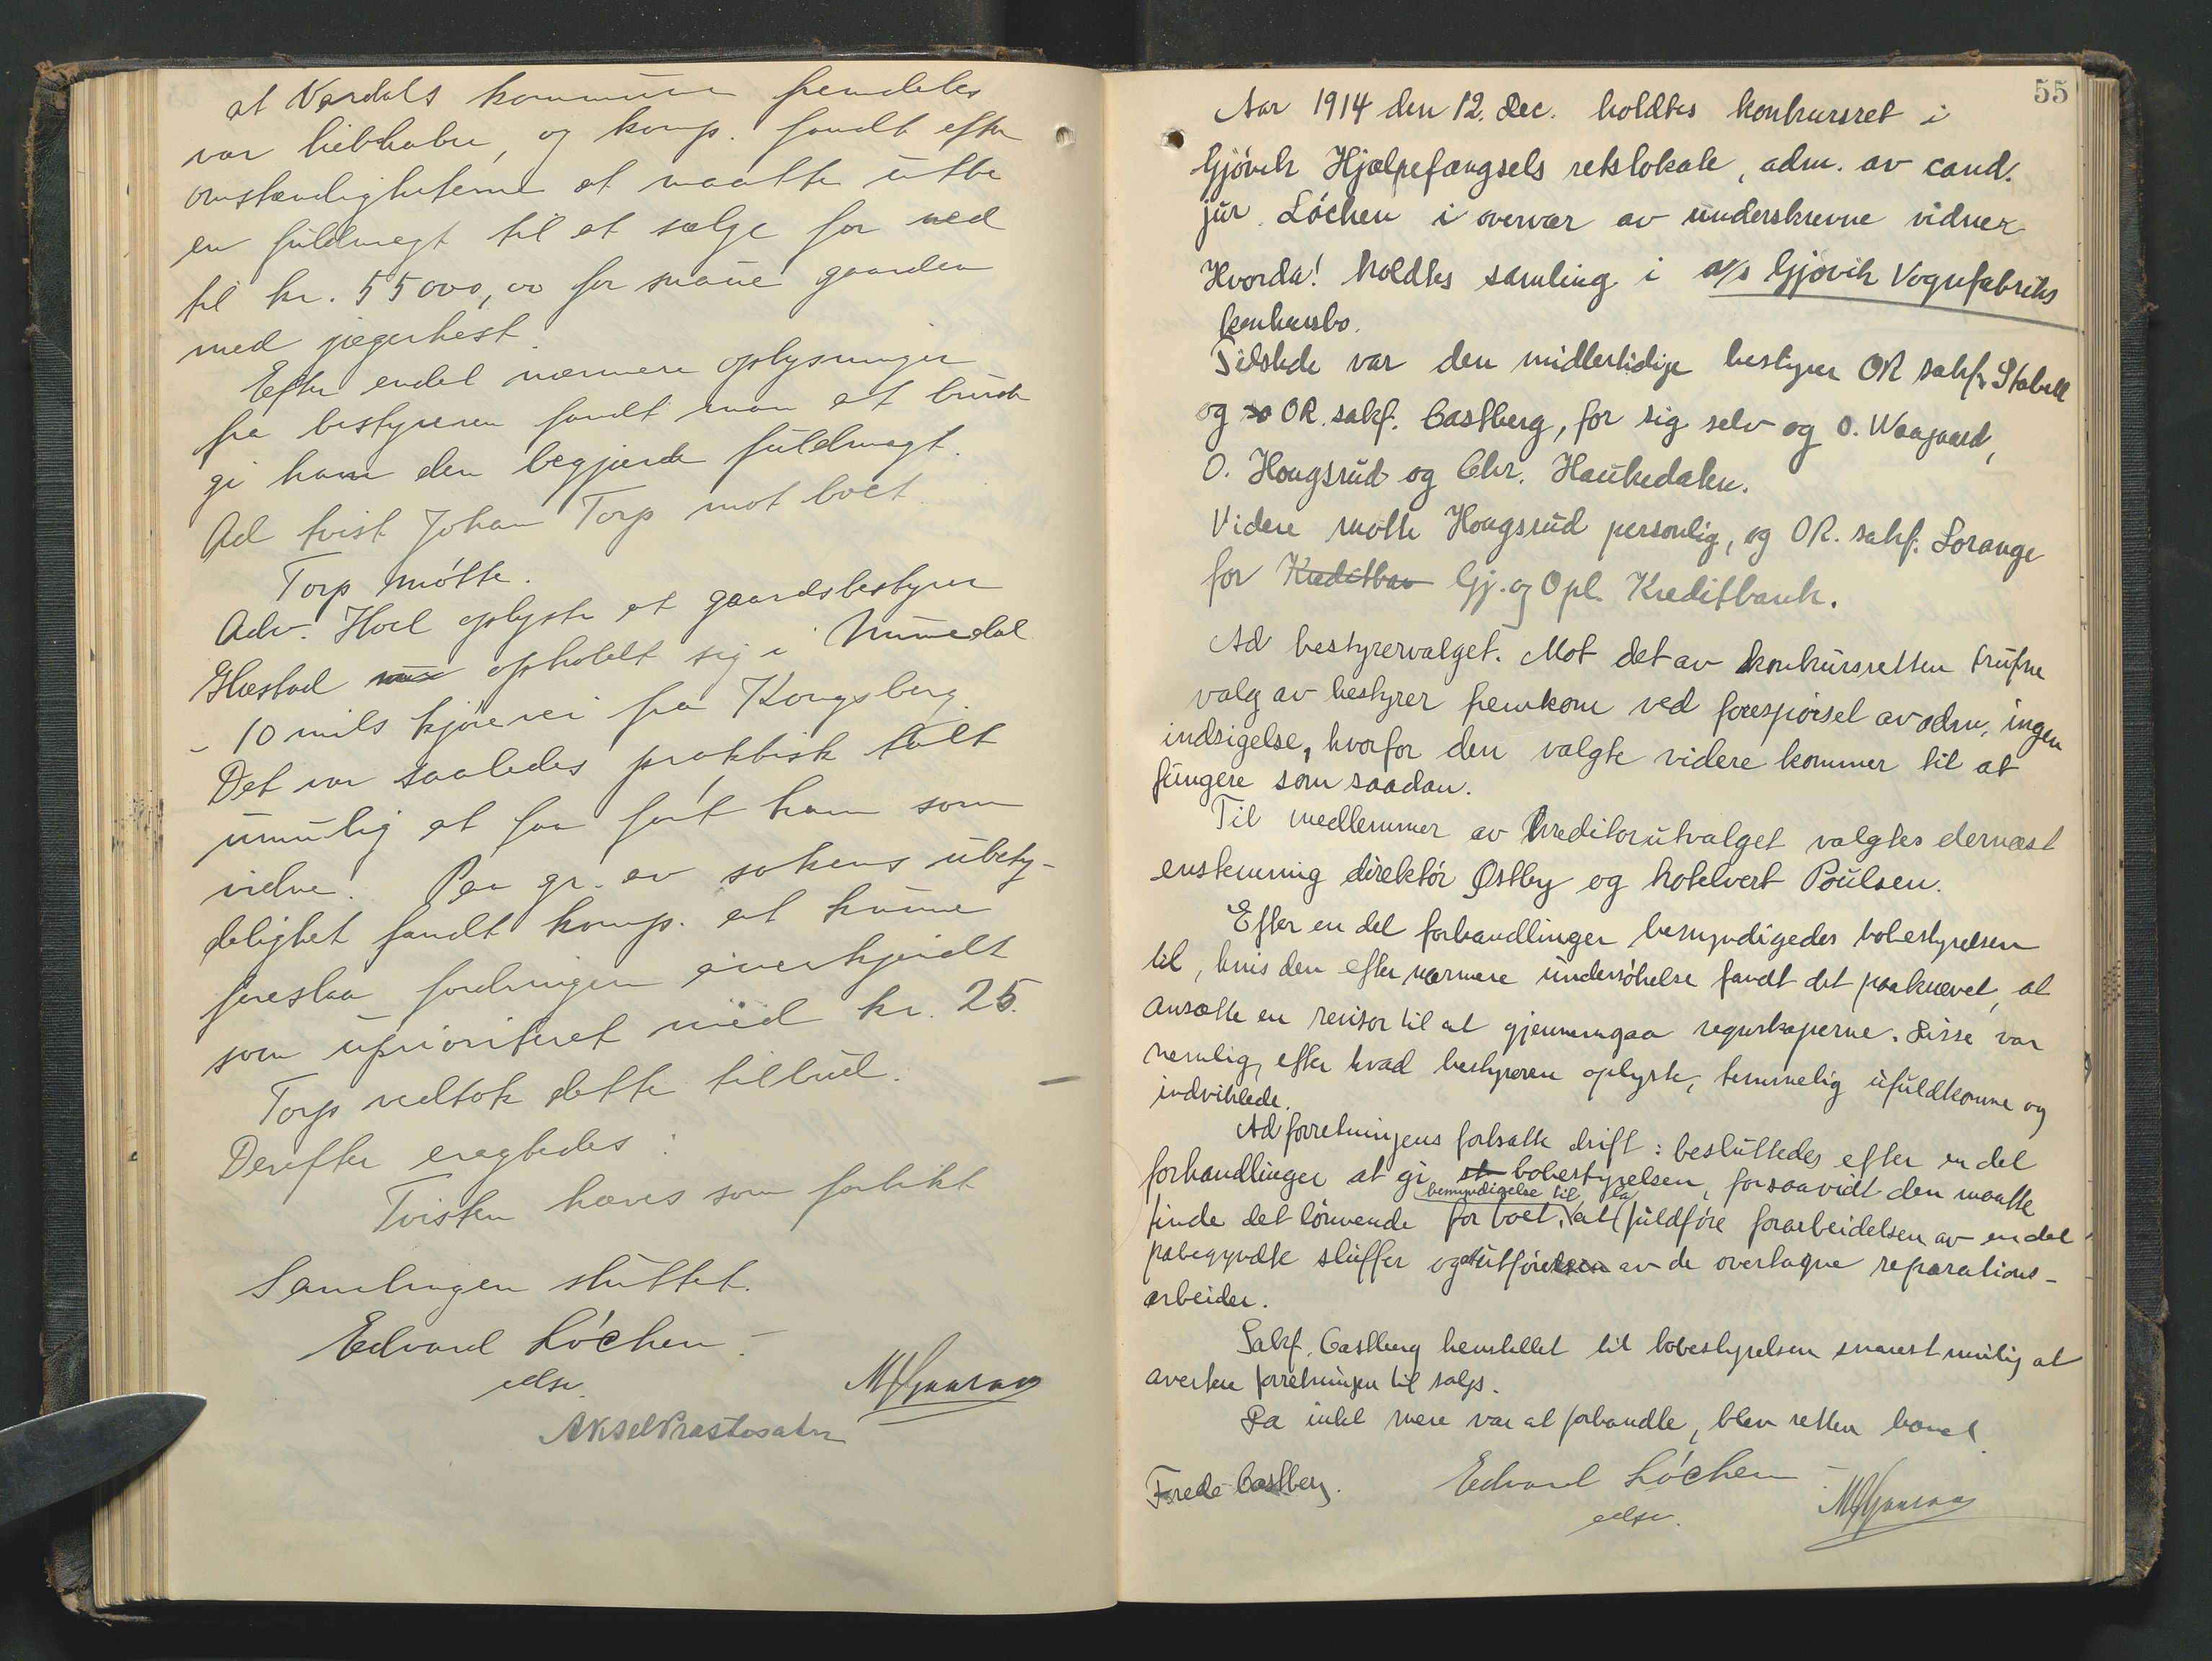 at Vardals kommune fremdeles
var liebhaber, og komp. fandt efter
omstændigheterne at maatte utbe
en fuldmagt til at sælge for ned
til kr. 55000,00 for snaue gaarden
med jægerhest.
Efter endel nærmere oplysninger
fra bestyreren fandt man at burde
gi ham den begjærde fuldmagt.
Ad tvist Johan Torp mot boet
Torp møtte.
Adv. Hoel oplyste at gaardsbestyrer
Glæstad opholdt sig i Numedal
- 10 mils kjørevei fra Kongsberg.
Det var saaledes praktisk talt
umulig at faa ført ham som
vidne. Paa gr. av sakens ubety-
delighet fandt komp. at kunne
foreslaa fordringen anerkjendt
som uprioriteret med kr. 25.
Torp vedtok dette tilbud.
Derefter eragtedes:
Tvisten hæves som forlikt
Samlingen sluttet.
Edvard Løchen
edsv.
Aksel

55
Aar 1914 den 12. Dec. holdtes konkursret i
Gjøvik Hjælpefængsels retslokale, adm. av cand.
jur. Løchen i overvær av underskrevne vidner
Hvorda! holdtes samling i a/s Gjøvik Vognfabriks
konkursbo.
Tilstede var den midlertidige bestyrer OR sakf. Stabell
og so OR. sakf. Castberg, for sig selv og O. Waagaard,
O. Hougsrud og Chr. Haukedalen.
Videre møtte Hougsrud personlig, og OR. sakf. Lorange
for Kreditban Gj. og Opl. Kreditbank.
Ad bestyrervalget. Mot det av konkursretten trufne
valg av bestyrer fremkom ved forespørsel av adm. ingen
indsigelse, hvorfor den valgte videre kommer til at
fungere som saadan.
Til medlemmer av kreditorutvalget valgtes dernæst
enstemmig direktør Østby og hotelvert Poulsen.
Efter en del forhandlinger bemyndigedes bobestyrelsen
til, hvis den efter nærmere undersøkelse fandt det paakrævet, at
ansætte en revisor til at gjennemgaa regnskaperne. Disse var
nemlig, efter hvad bestyreren oplyste, temmelig ufuldkomne og
indviklede.
Ad forretningens fortsatte drift: besluttedes efter en del
forhandlinger at gi st bobestyrelsen, forsaavidt den maatte
bemyndigelse til la
finde det lønnende for boet, at fuldføre forarbeidelsen av en del
paabegyndte sluffer og utførelsen av de overtagne reparations-
arbeider.
Sakf. Castberg henstillet til bobestyrelsen snarest mulig at
avertere forretningen til salgs.
Da intet mere var at forhandle, blev retten hævet.
Frede Castberg. Edvard Løchen
edsv.